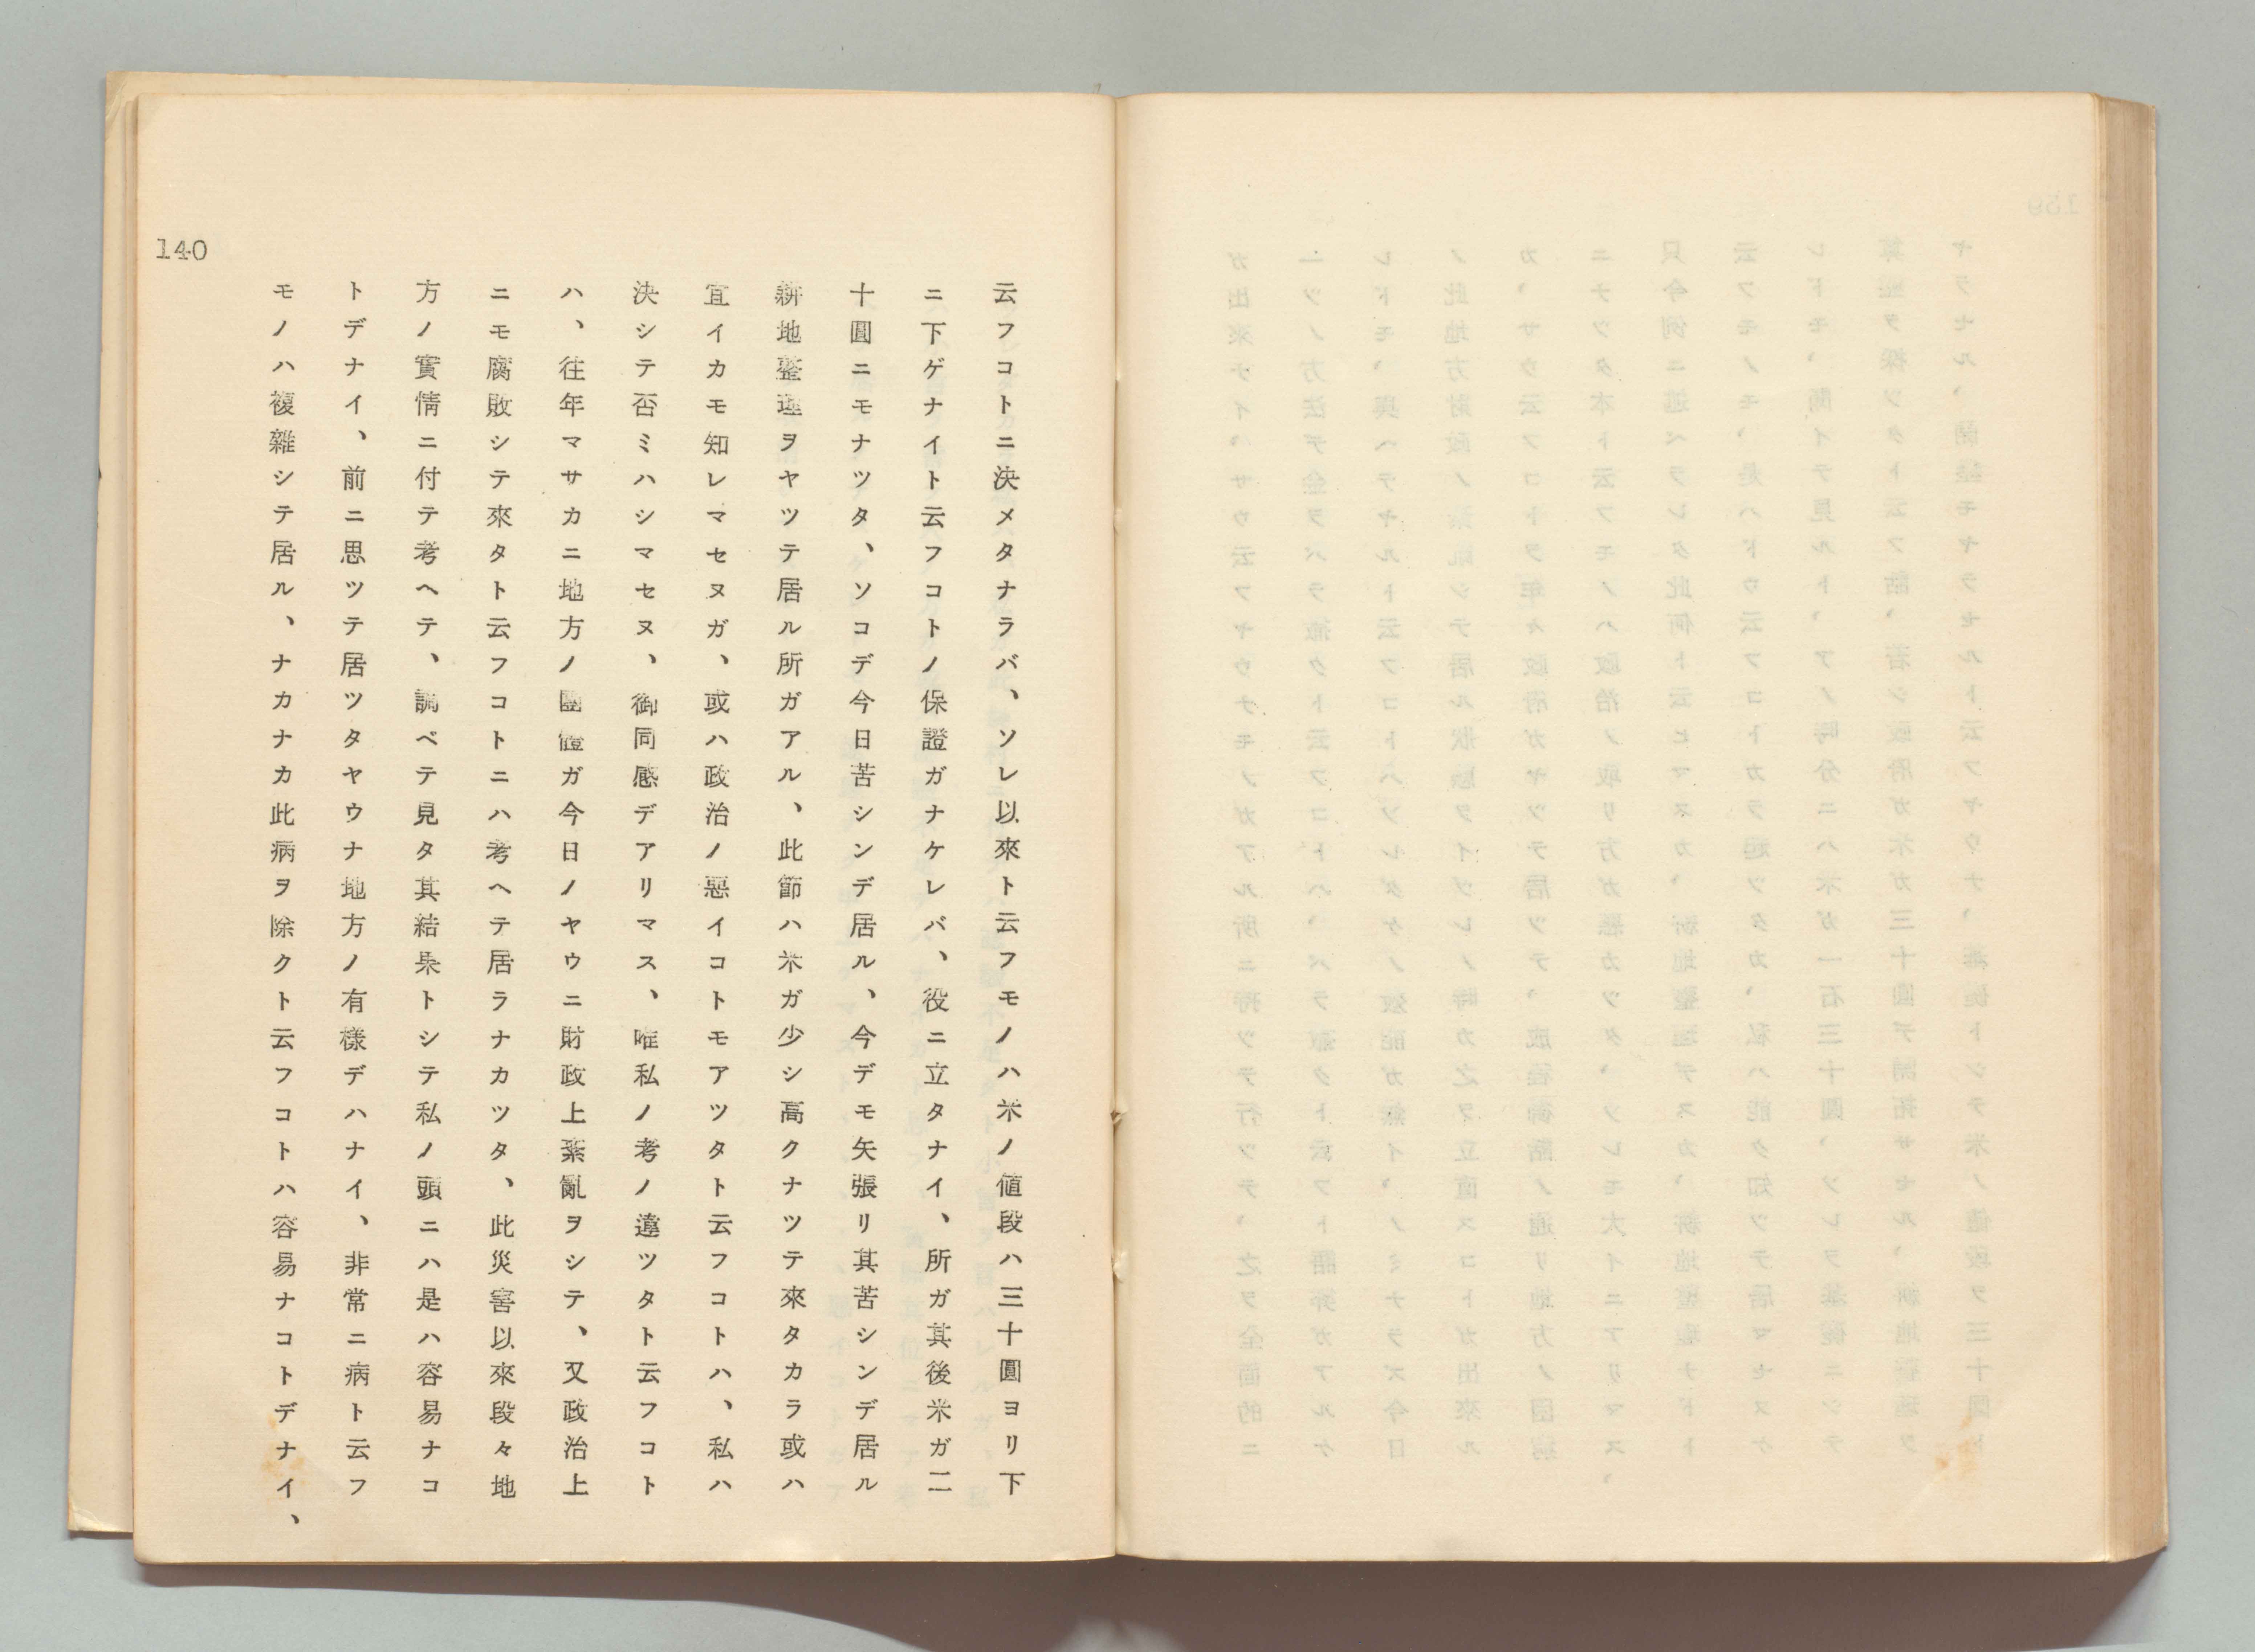 140
云フコトニ決メタナラバ、ソレ以來ト云フモノハ米ノ値段ハ三十圓ヨリ下
ニ下ゲナイト云フコトノ保證ガナケレバ、役ニ立タナイ、所ガ其後米ガ二
十圓ニモナツタ、ソコデ今日苦シンデ居ル、今デモ矢張リ其苦シンデ居ル
耕地整理ヲヤツテ居ル所ガアル、此節ハ米ガ少シ高クナツテ來タカラ或ハ
宜イカモ知レマセヌガ、或ハ政治ノ惡イコトモアツタト云フコトハ、私ハ
決シテ否ミハシマセヌ、御同感デアリマス、唯私ノ考ノ違ツタト云フコト
ハ、往年マサカニ地方ノ團體ガ今日ノヤウニ財政上紊亂ヲシテ、又政治上
ニモ腐敗シテ來タト云フコトニハ考ヘテ居ラナカツタ、此災害以來段々地
方ノ實情ニ付テ考ヘテ、調ベテ見タ其結果トシテ私ノ頭ニハ是ハ容易ナコ
トデナイ、前ニ思ツテ居ツタヤウナ地方ノ有樣デハナイ、非常ニ病ト云フ
モノハ複雜シテ居ル、ナカナカ此病ヲ除クト云フコトハ容易ナコトデナイ、